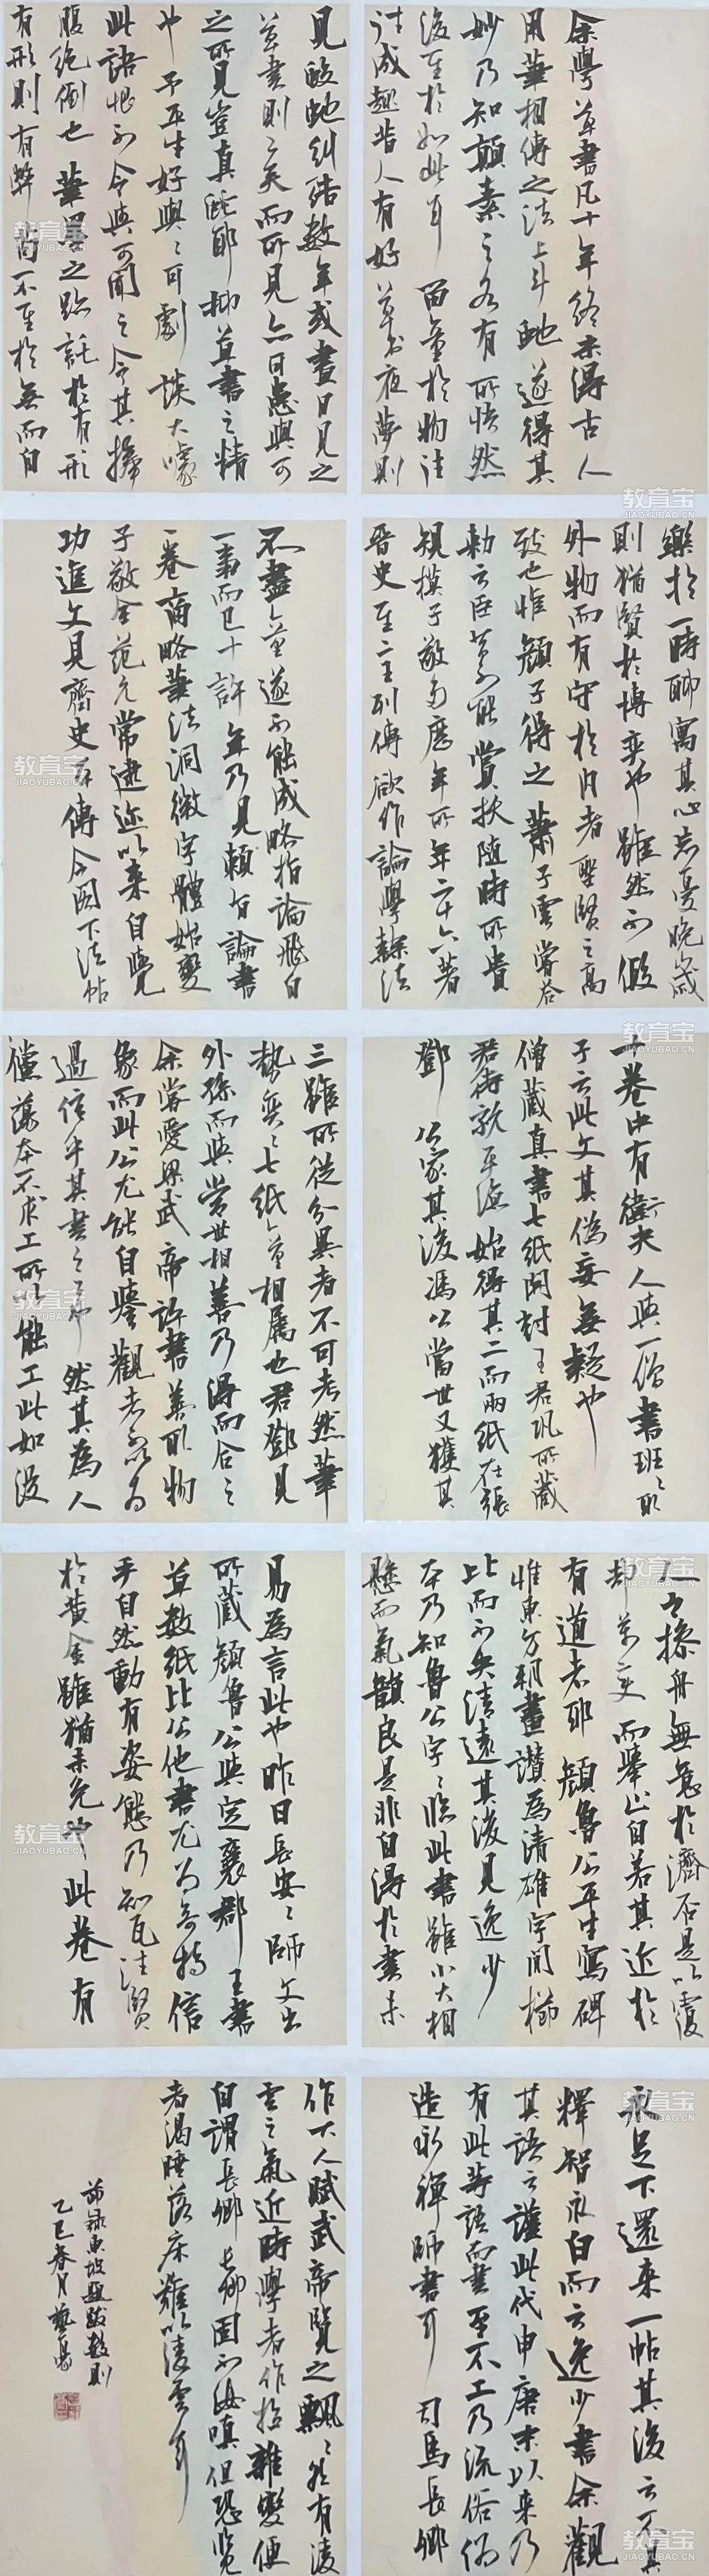 余學草書凡十年終未得古人
用筆相傳之法上斗虵遂得其
妙乃知顛素之各有所悟然
後至於如此耳留意於物往
往成趣昔人有好草書夜夢則
見蛟虵糾結數年或晝日見之
草書則工矣而所見亦可患與可
之所見豈真虵耶抑草書之精
也予平生好與與可劇談大噱
此語恨不令與可聞之令其捧
腹絕倒也筆墨之跡託於有形
有形則有弊苟不至於無而自
樂於一時聊寓其心忘憂晚歲
則猶賢於博弈也雖然不假
外物而有守於內者聖賢之高
致也惟顏子得之蕭子雲嘗答
勅云臣昔不能賞拔隨時所貴
規模子敬多歷年所年二十六著
晉史至二王列傳欲作論學隸法
不盡意遂不能成略指論飛白
一事而已十許年乃見勅旨論書
一卷商略筆法洞微字體始變
子敬全范元常逮迩以來自覺
功進文見齊史本傳今閣下法帖
十卷中有衛夫人與一僧書班班取
子云此文其偽妄無疑也
僧藏真書七紙開封王君鞏所藏
君侍親平涼始得其二而兩紙在張
鄧公家其後馮公當世又獲其
三雖所從分異者不可考然筆
勢奕奕七紙意相屬也君鄧公
外孫而與當世相善乃得而合之
余嘗愛梁武帝評書善取物
象而此公尤能自譽觀者不以為
過信乎其書之工也然其為人
儻蕩本不求工所以能工此如沒
人之操舟無意於濟否是以覆
却萬變而舉止自若其近於
有道者耶顏魯公平生寫碑
惟東方朔畫讚為清雄字間櫛
比而不失清遠其後見逸少
本乃知魯公字字臨此書雖小大相
懸而氣韻良是非自得於書未
易為言此也昨日長安安師文出
所藏顏魯公與定襄郡王書
草數紙比公他書尤為奇特信
手自然動有姿態乃知瓦注賢
於黃金雖猶未免也此卷有
永足下還來一帖其後云不具
釋智永白而云逸少書余觀
其語云謹此代申唐末以來乃
有此等語而書至不工乃流俗偽
造永禪師書耳司馬長卿
作大人賦武帝覽之飄飄然有凌
雲之氣近時學者作拍難變便
自謂長卿長卿固不汝嗔但恐覽
者渴睡落床難以凌雲耳
節錄東坡題跋數則
乙巳春月藝陽
教育宝
JIAOYUBAO.CN